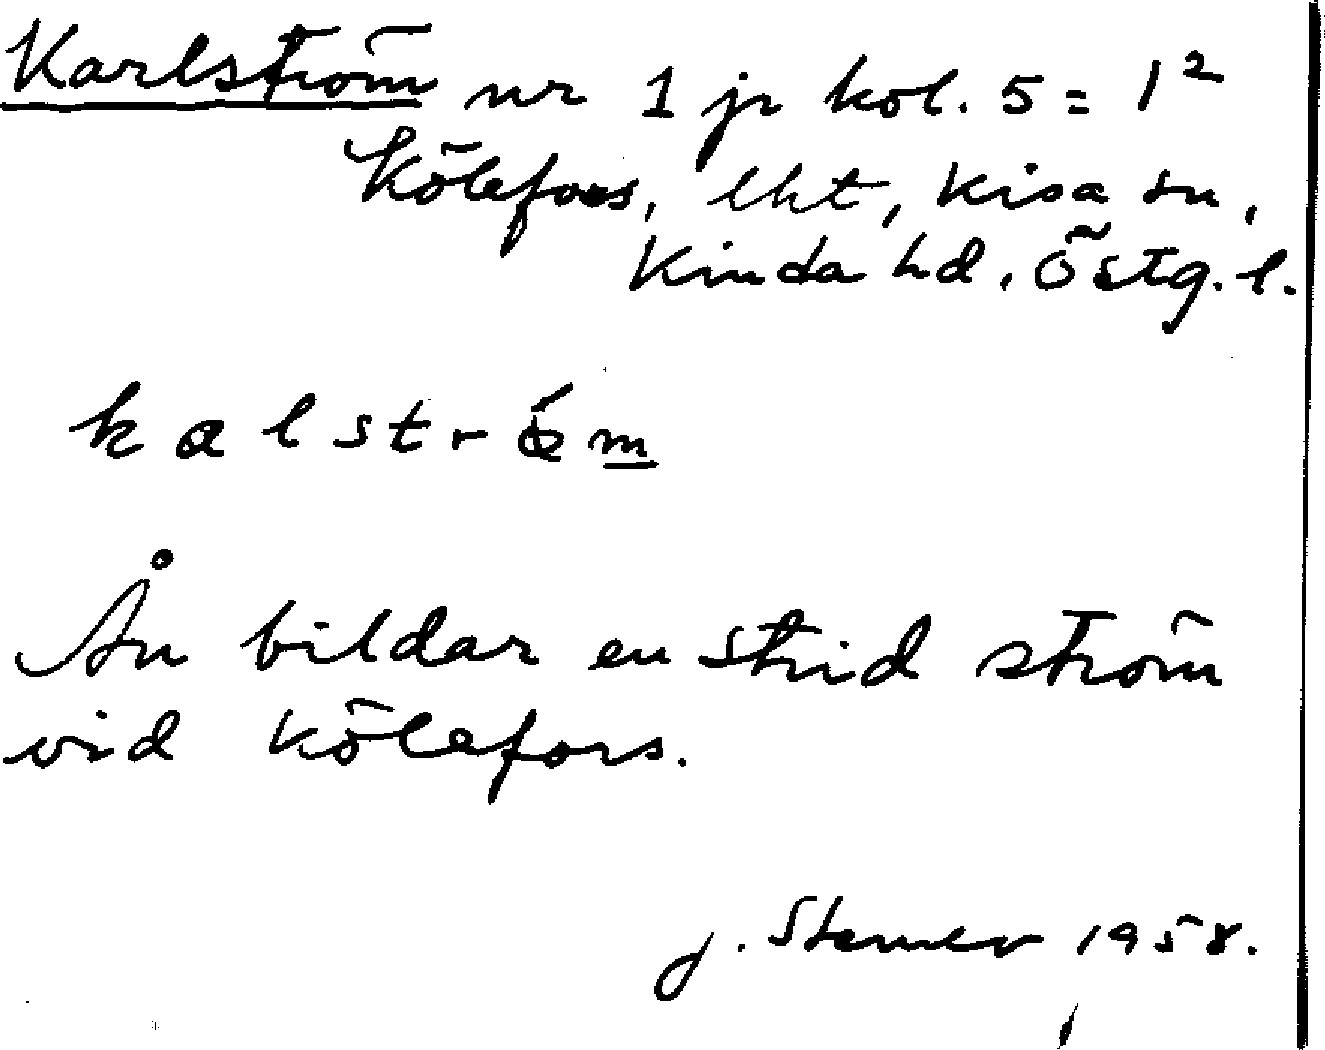 Karlström nr 1 jr kol. 5 = 1²
Kölefors, lht, Kisa sn,
Kinda hd, Östg. l.
kalström
Ån bildar en strid ström
vid Kölefors.
J. 1958.